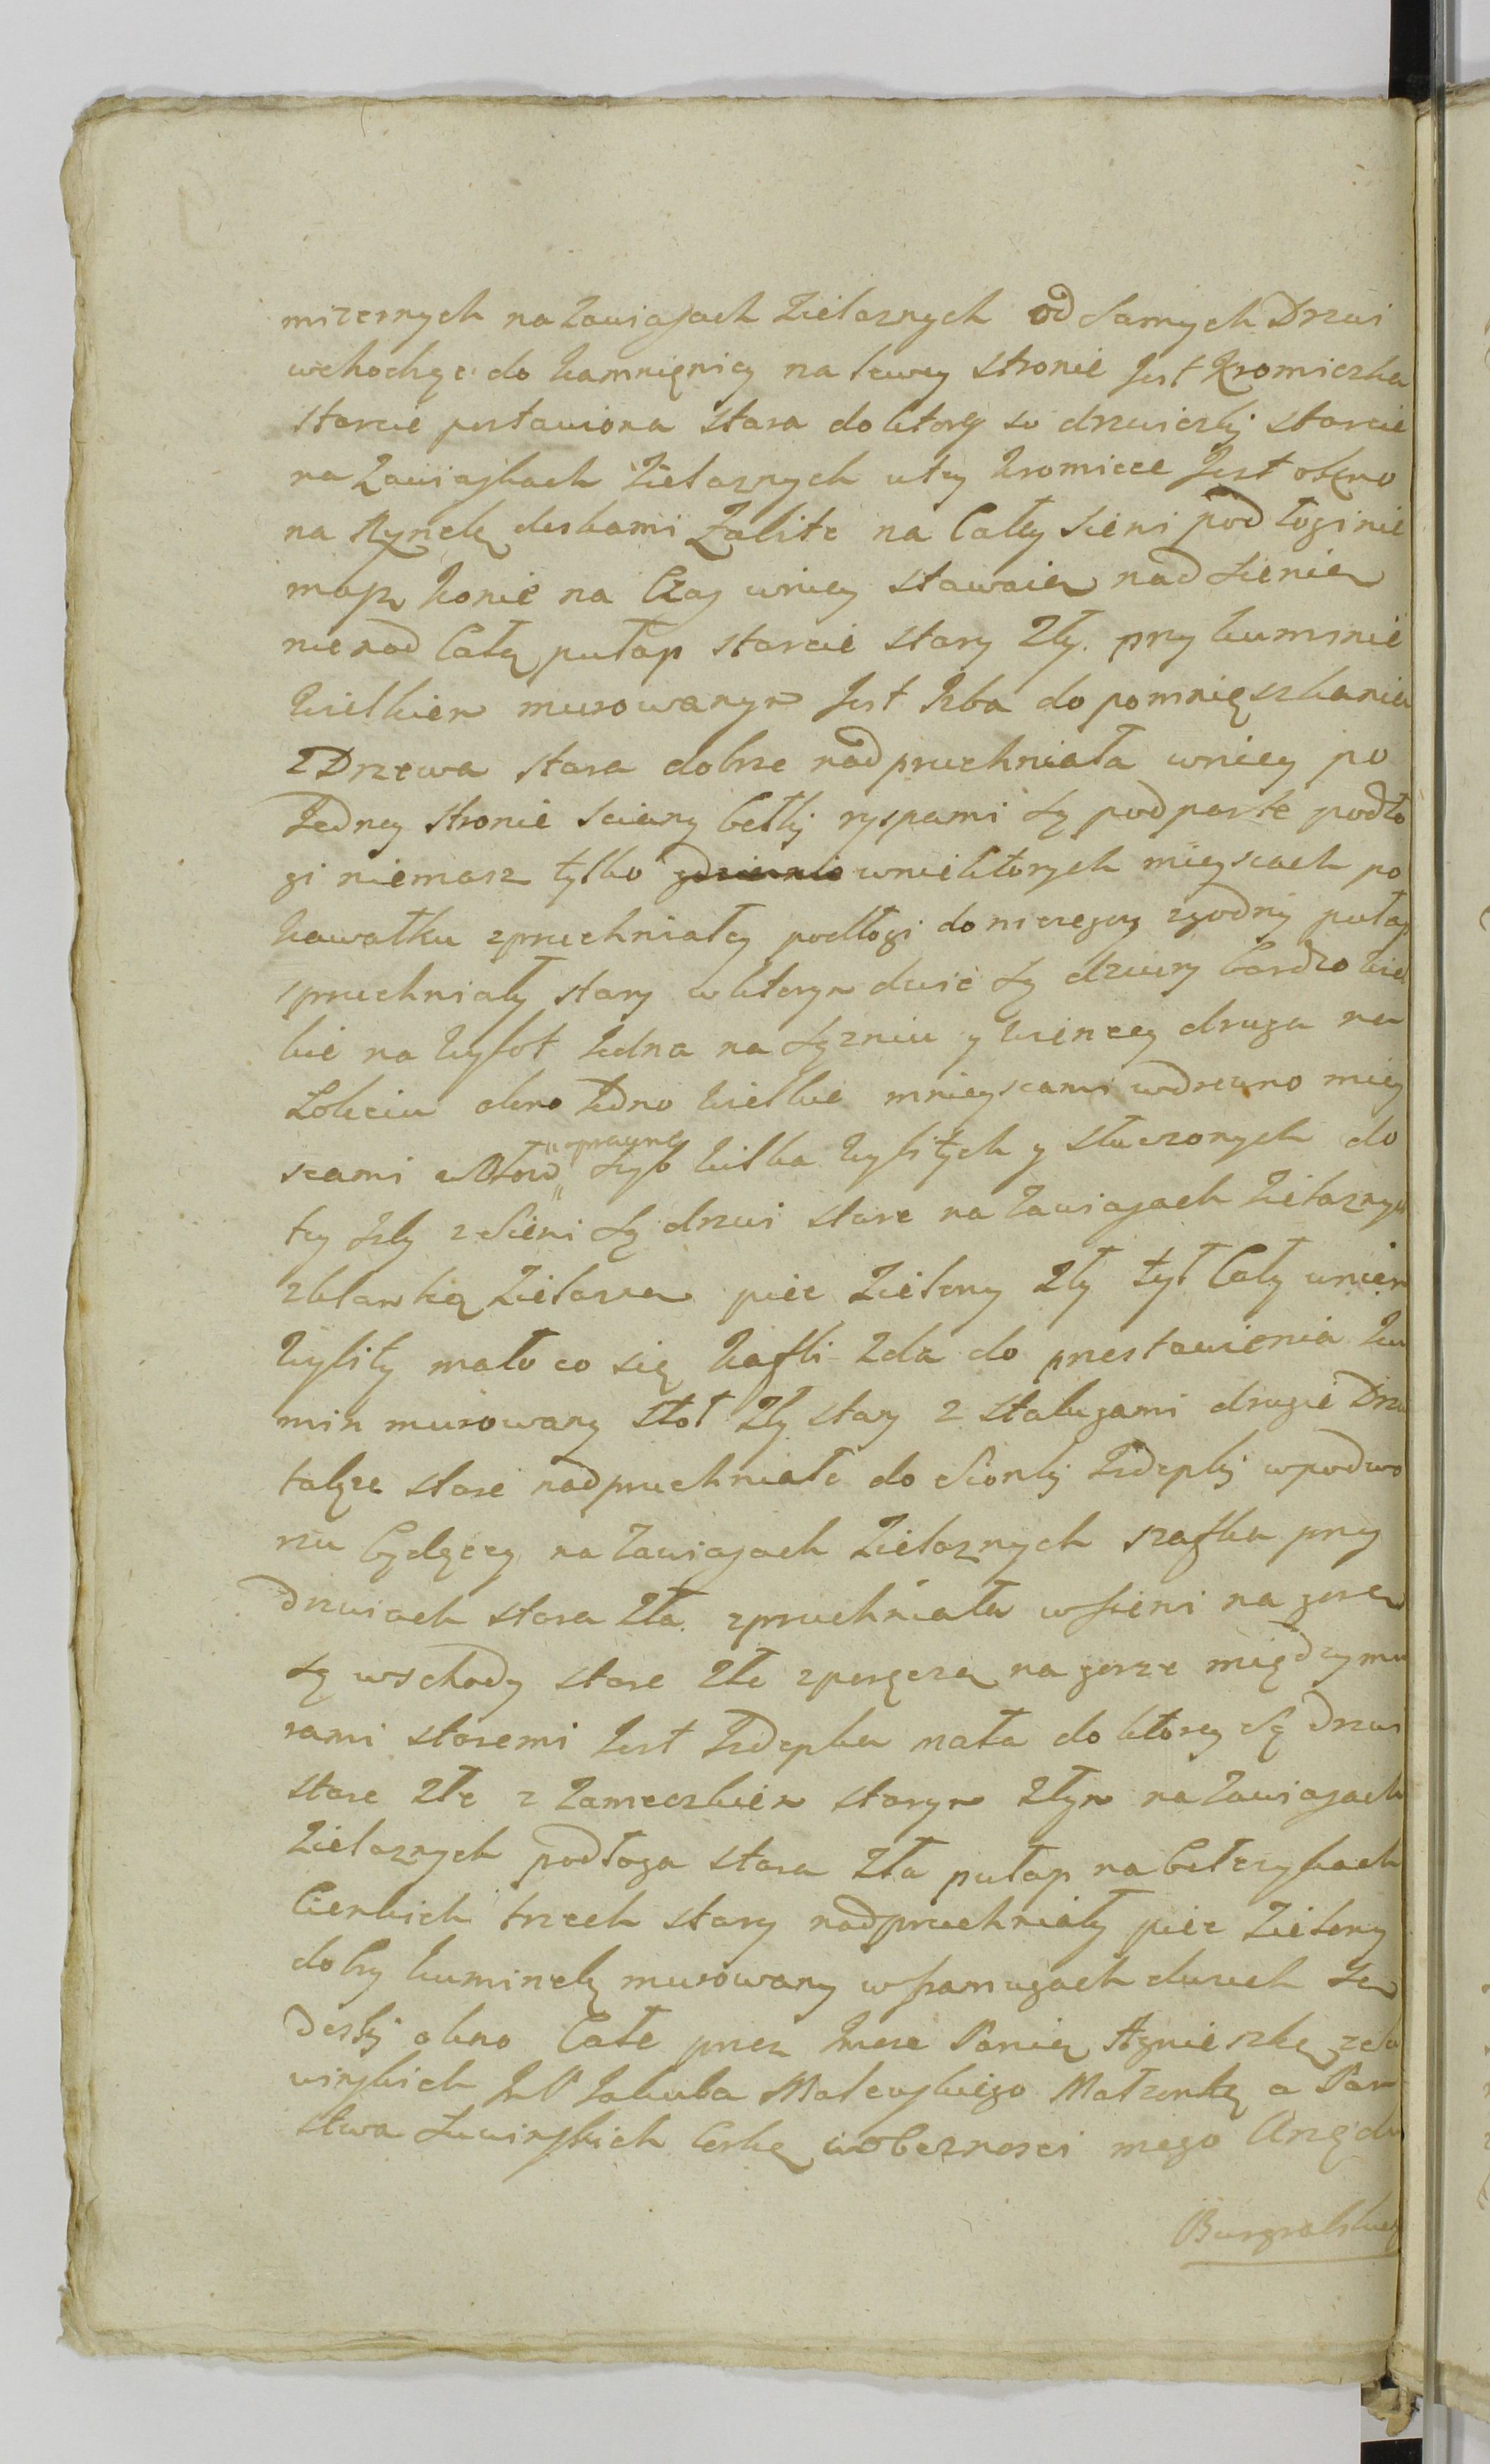 mizernych na Zawiasach Zielaznych od Samych Drzwi
wchodząc do kamnięnicy na lewey stronie Jest Kromiczka
starcie postawiona stara do ktorey so drzwiczky starcie
na Zawiaskach Zielaznych w tey Kromicce Jest okęno
na Rynek deskami Zabite na Całey Sieni podłogi nie
masz konie na Czas w niey stawaią nad Sienią
nie nad Całą pułap starcie stary Zły. przy kuminie
Wielkiem murowanym Jest Izba do pomnięszkania
z Drzewa stara dobrze nadpruchniała w niey po
Jedney stronie Sciany belky ryspami są podparte podło
gi niemasz tylko w niektorych mieyscach po
kawałku zpruchniałey podłogi do niczegoy zgodny pułap
spruchniały stary w ktorym dwie są dziury bardzo wiel
kie na wylot Jedna na Sązniu y wiencey druga na
Łokciu okno Jedno Wielkie mnieyscami w drewno miey
scami w Ołow oprawne Szyb kilka wybitych y stuczonych do
tey Izby z Sieni są drzwi stare na Zawiasach Zielaznych
z klamką Zielazną piec Zielony Zły tył Cały w niem
wybity mało co się kafli zda do przestawienia ku
min murowany stoł Zły stary z stalugami drugie Drzwi
także stare nadpruchniałe do Sionky Izdepky w podwo
rzu będącey na Zawiasach Zielaznych szafka przy
Drzwiach stara Zła zpruchniała w Sieni na gorę
są wschody stare Złe z poręczą na gorze między mu
rami staremi Jest Izdepka mała do ktorey Są drzwi
stare Złe z Zameczkiem starym Złym na Zawiasach
Zielaznych podłoga stara Zła pułap na belczykach
Cienkich trzech stary nadpruchniały piec Zielony
dobry kuminek murowany w framugach dwuch Są
Desky okno Całe przez Imsc Panią Agnieszkę z Su
winskich ImP Jakuba Malewskiego Małzonkę a Pan
stwa Suwinskich Corkę w obeznosci mego Urzędu
Burgrabskieg